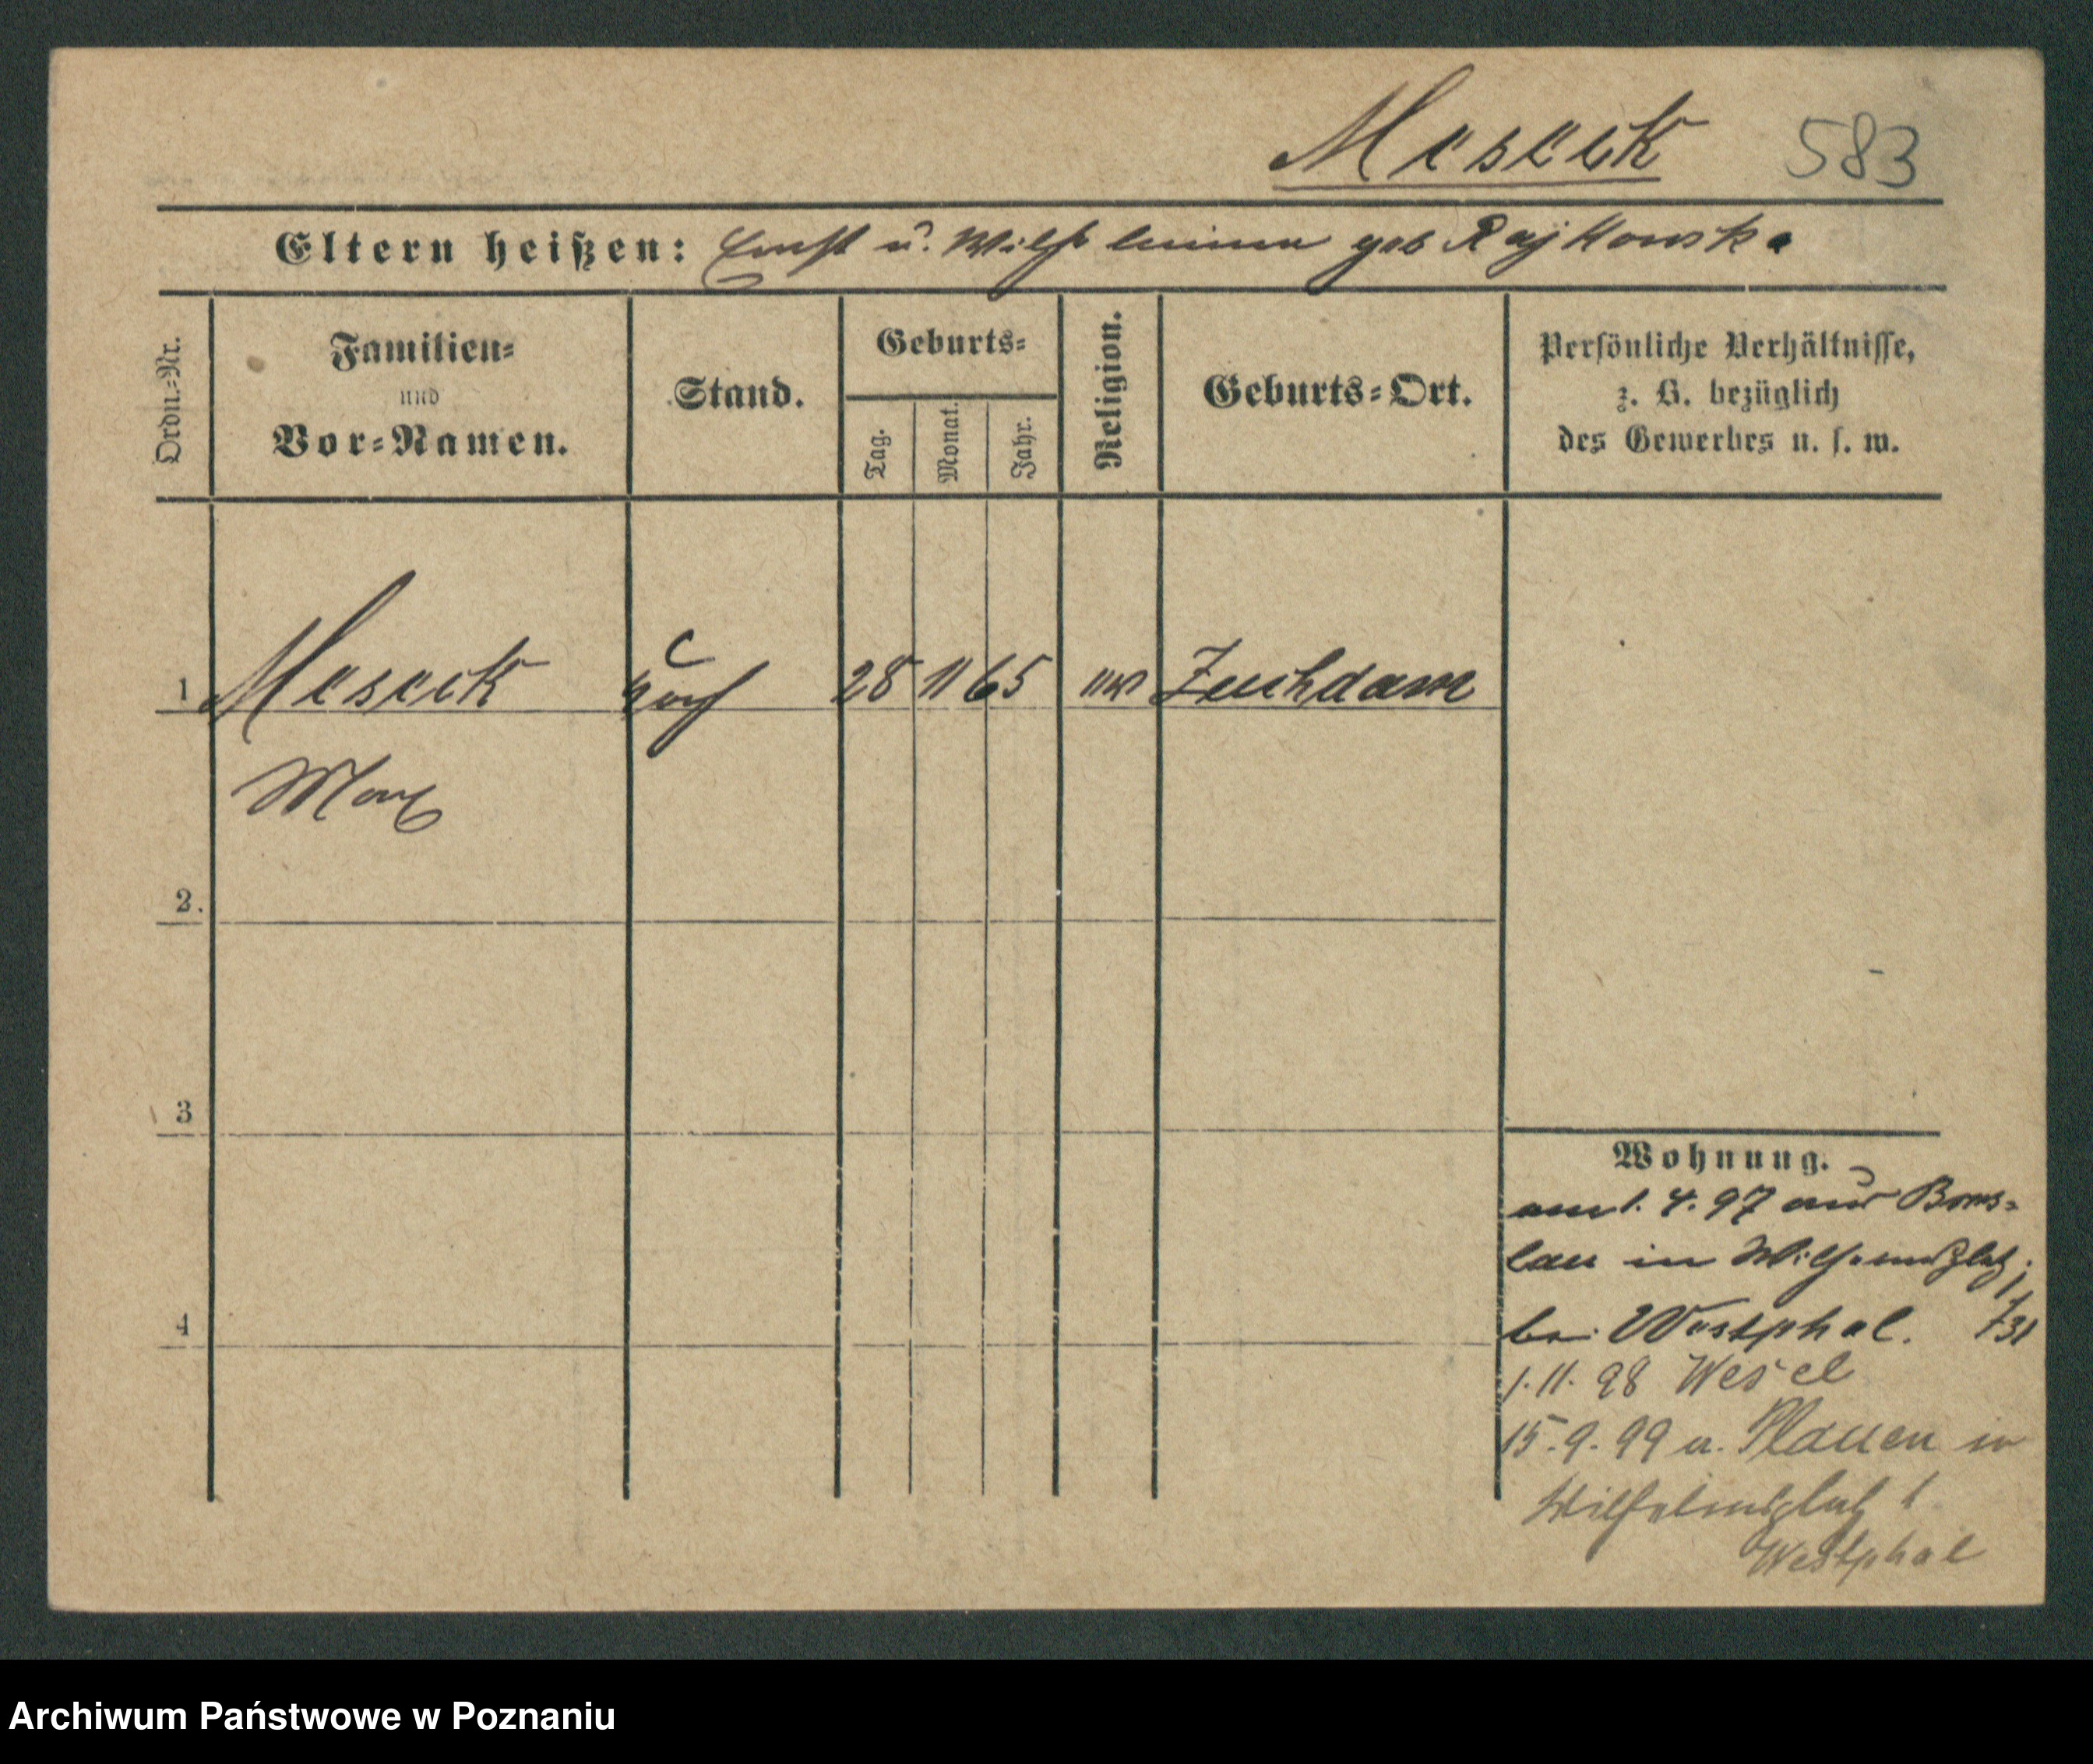 Meseck 583
Eltern heißen: Ernst u. Wilhelmine geb Rajkowska
Ordn.-Nr.
Familien-
und
Vor-Namen.
Stand.
Geburts-
Tag.
Monat.
Jahr.
Religion.
Geburts-Ort.
Persönliche Verhältnisse,
z. B. bezüglich
des Gewerbes u. s. w.
1 Meseck 28 11 65 Zeuhdam
Max
2.
3
4
Wohnung.
am 1. 4. 97 aus
lau in Wilhelmsplatz
bei Westphal.
1. 11. 98 Wesel
15. 9. 99 a. Plauen in
Wilhelmsplatz 1
Westphal
Archiwum Państwowe w Poznaniu